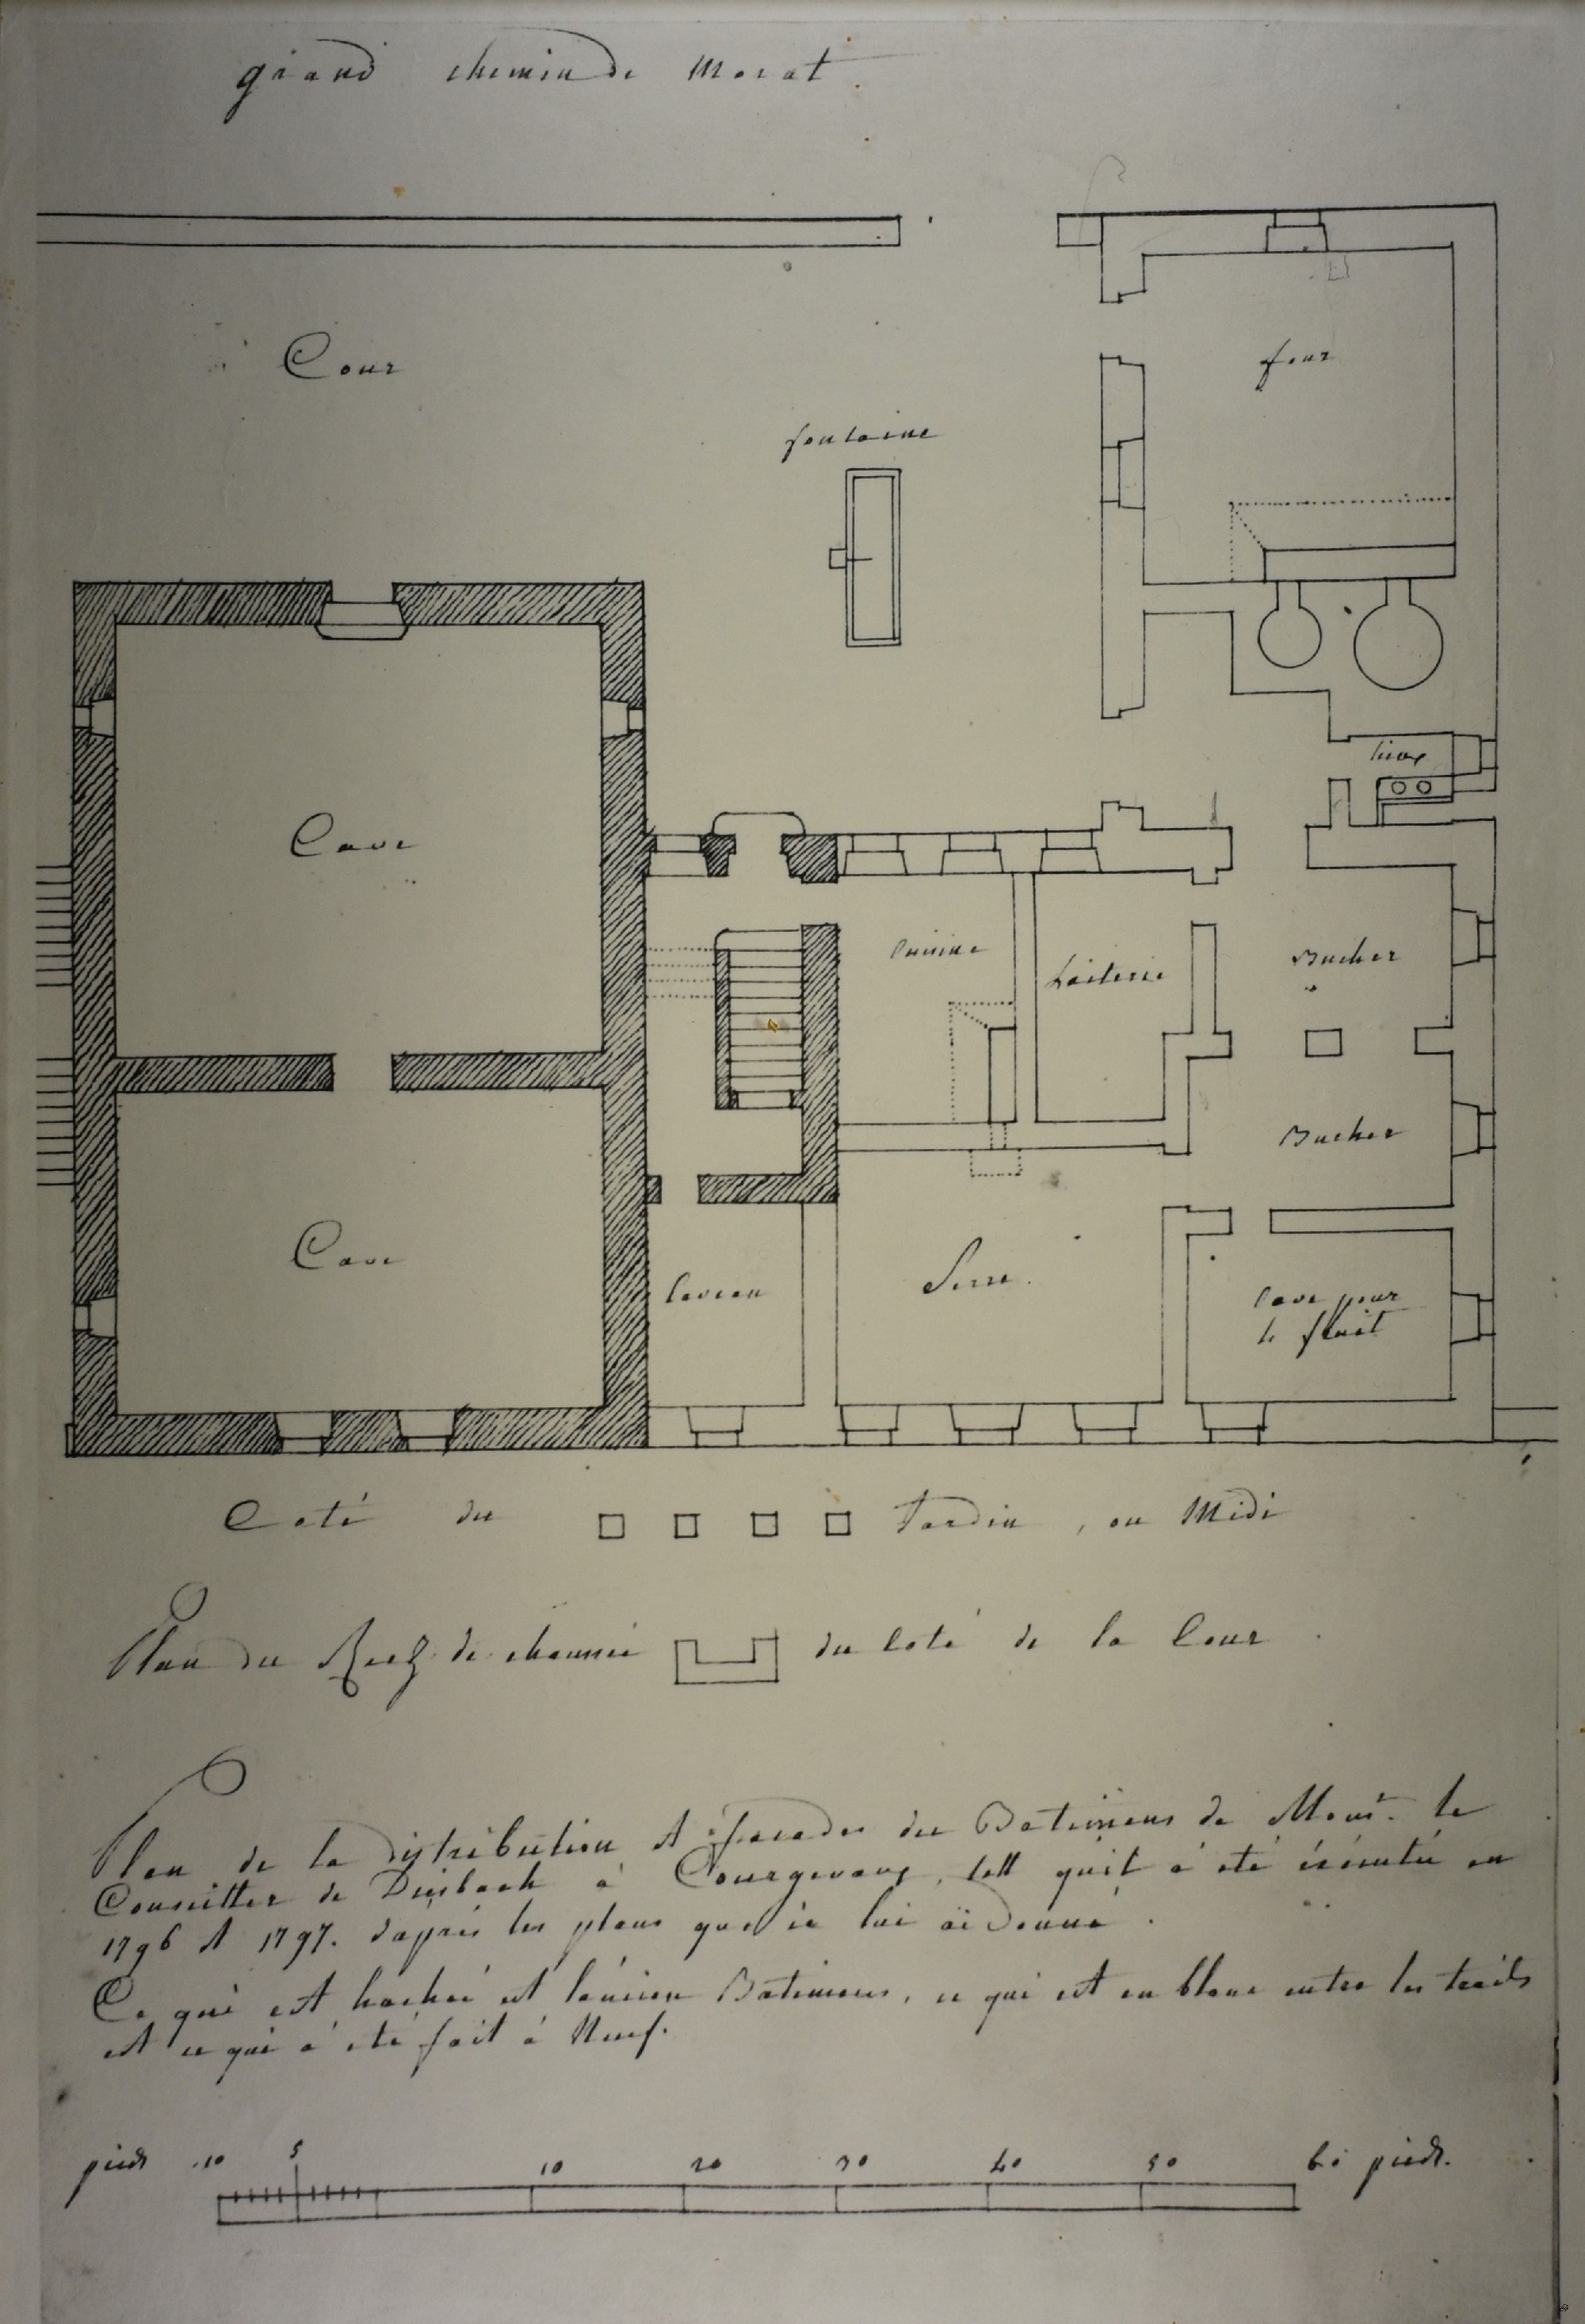 grand chemin de Morat
Cour
four
fontaine
Cave
Cuisine
Laiterie
Bucher
Bucher
Cave
Caveau
Serre.
Cave pour
le fruit
Coté du Jardin, ou Midi
Plan du Rez de chaussée du Coté de la Cour.
Plan de la Distribution et façades du Batiment de Monsr. le
Conseiller de Diesbach à Courgevaux, tell qu'il a été éxécuté en
1796 et 1797. d'après les plans que je lui ai Donné.
Ce qui est haché est l'ancien Batiment, ce qui est en blanc entre les traits
est ce qui a été fait à Neuf.
pieds 10 5 10 20 30 40 50 60 pieds.